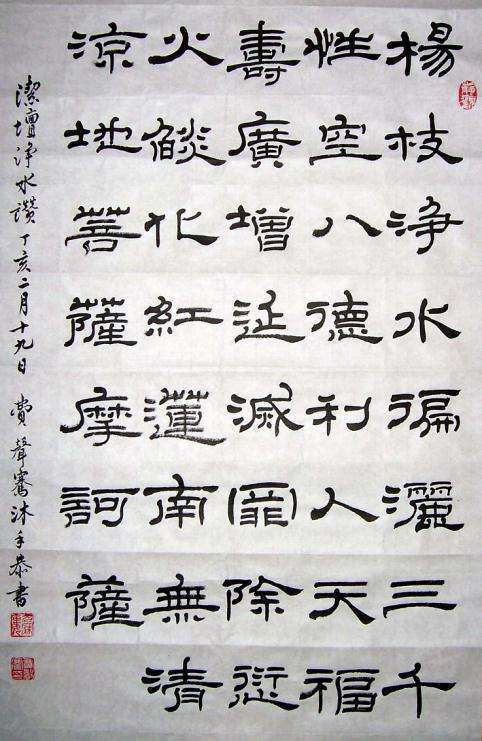 楊枝淨水徧灑三千
性空八德利人天福
壽廣增延滅罪除愆
火燄化紅蓮南無清
涼地菩薩摩訶薩
潔壇淨水讚 丁亥二月十九日 費聲騫沐手恭書